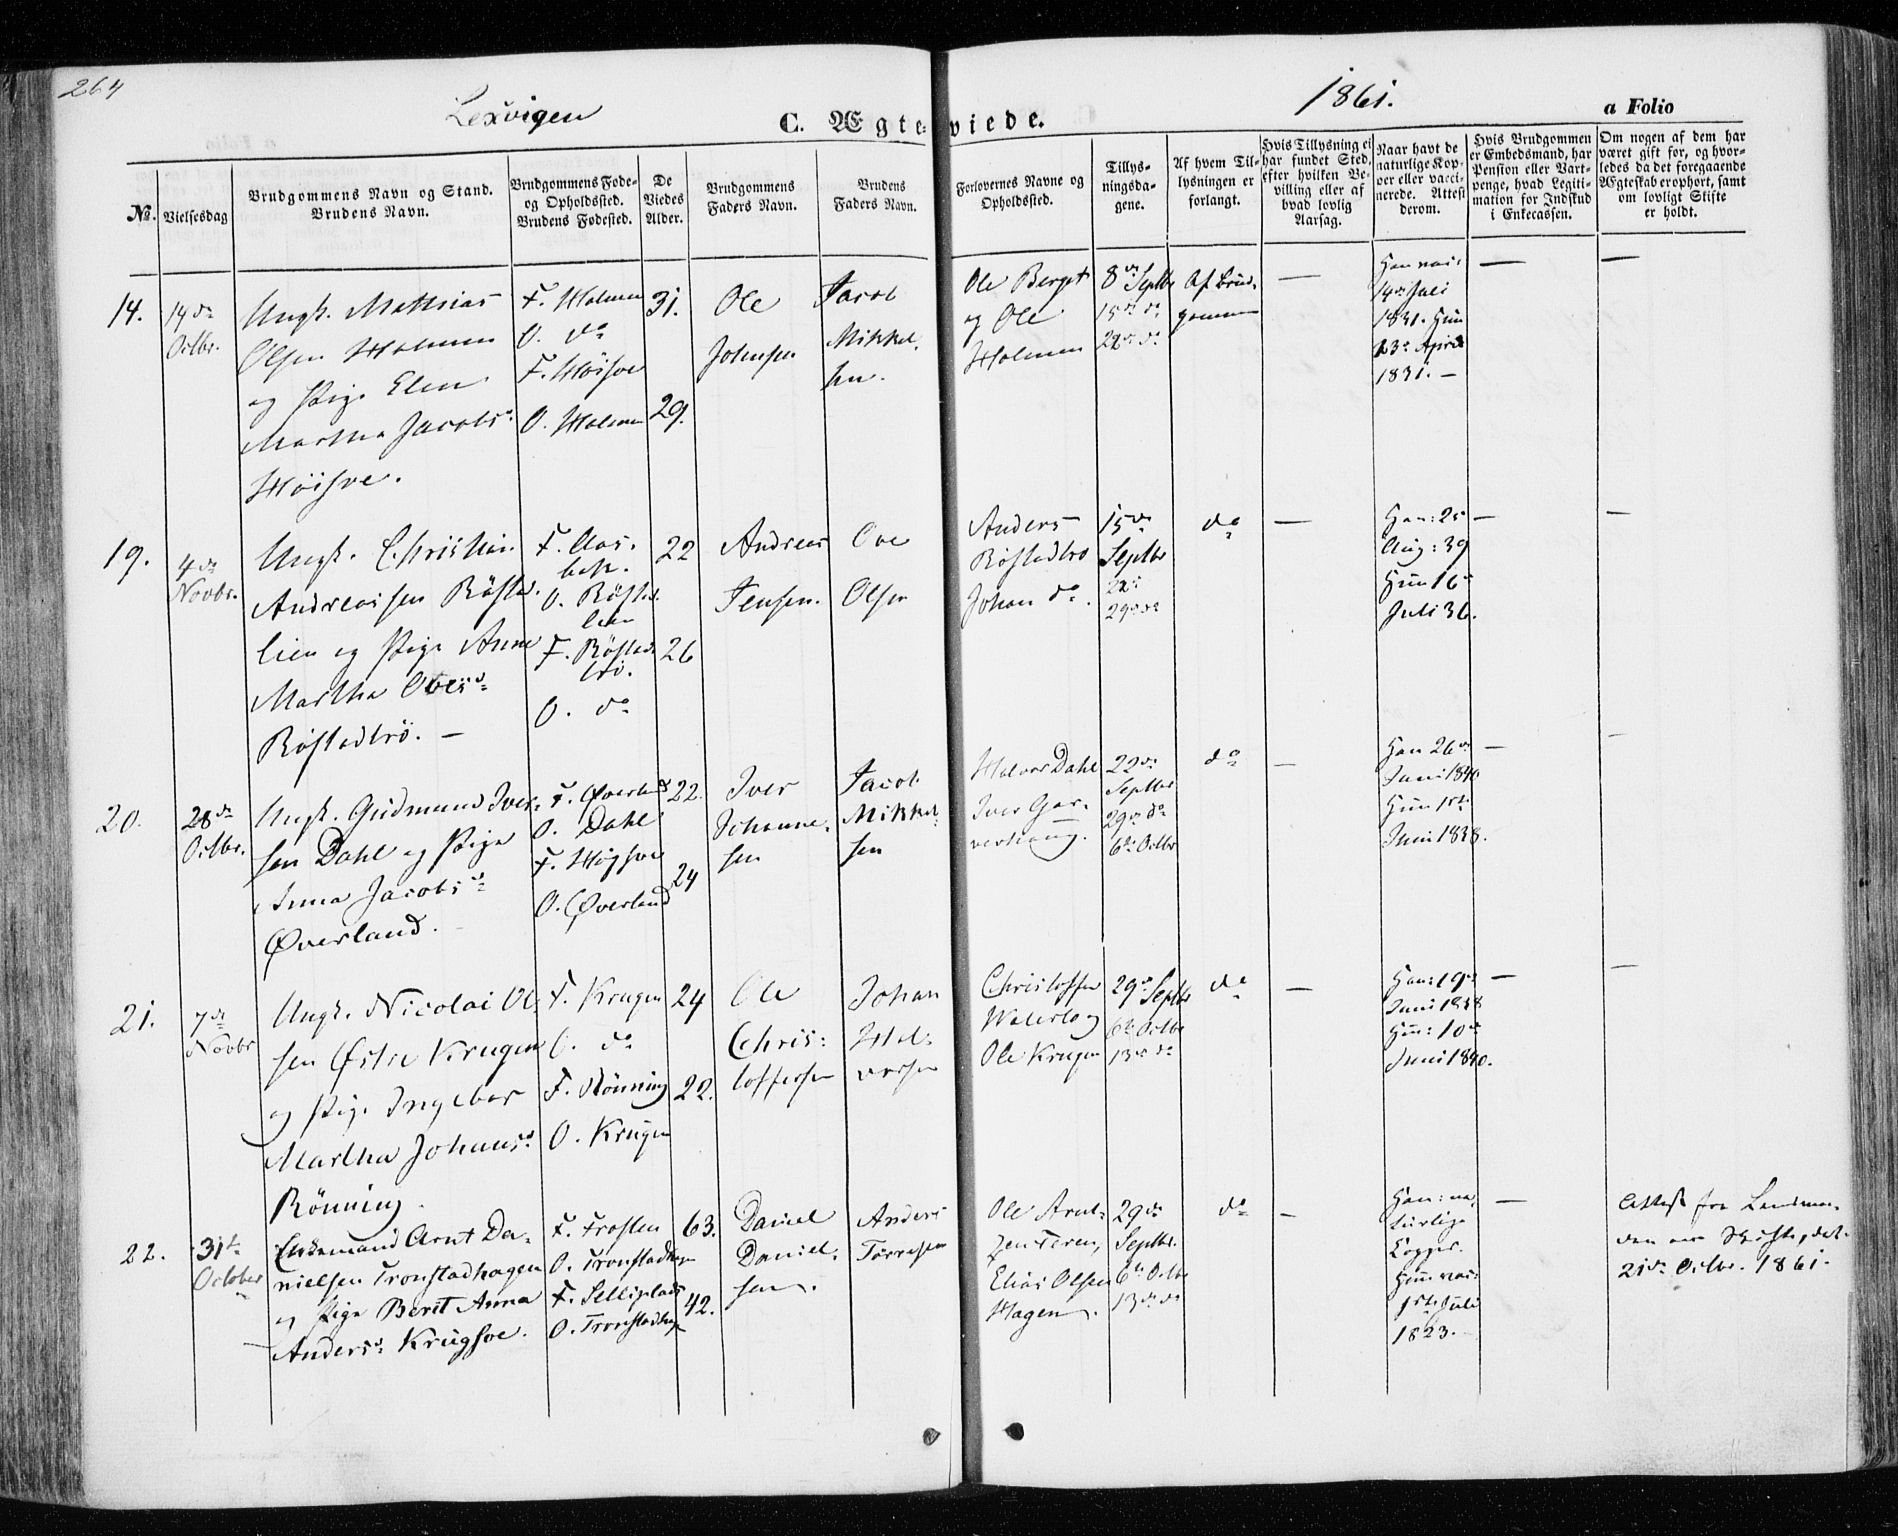 264
Lexvigen
C. Ægteviede.
1861.
a Folio
No.
Vielsesdag
Brudgommens Navn og Stand.
Brudens Navn.
Brudgommens Føde-
og Opholdssted.
Brudens Fødested.
De
Viedes
Alder.
Brudgommens
Faders Navn.
Brudens
Faders Navn.
Forlovernes Navne og
Opholdssted.
Tillys-
ningsda-
gene.
Af hvem Til-
lysningen er
forlangt.
Hvis Tillysning ei
har fundet Sted,
efter hvilken Be-
villing eller af
hvad lovlig
Aarsag.
Naar havt de
naturlige Kop-
per eller vacci-
nerede. Attest
derom.
Hvis Brudgommen
er Embedsmand, har
Pension eller Vart-
penge, hvad Legiti-
mation for Indskud
i Enkecassen.
Om nogen af dem har
været gift før, og hvor-
ledes da det foregaaende
Ægteskab erophørt, samt
om lovligt Skifte
er holdt.
14.
14de
Octbr.
Ungk. Mathias
Olsen Holmen
og Pige Elen
Martha Jacobsd.
Höisve.
F. Holmen
O. do
F. Höisve
O. Holmen
31.
29.
Ole
Johnsen
Jacob
Mikkel-
sen.
Ole Berget
og Ole
Holmen
8de Septbr
15de do
22de do
Af Brud-
gommen
—
Han vac:
14de Juli
1831. Hun
23de April
1831. —
—
—
19.
4de
Novbr.
Ungk. Christian
Andreassen Röstad-
lien og Pige Anne
Martha Ovesd.
Röstadtrö. —
F. Aas-
bak.
O. Röstad-
lien
F. Röstad-
trö.
O. do
22
26
Andreas
Jensen.
Ove
Olsen
Anders
Röstadtrö
Johan do.
15de
Septbr
22de
29de do
do
—
Han: 25
Aug: 39
Hun 16de
Juli 36.
—
—
20.
28de
Octbr.
Ungk. Gudmund Iver-
sen Dahl og Pige
Anna Jacobsd.
Øverland.
F. Øverland
O. Dahl
F. Höysve
O. Øverland
22.
24
Iver
Johanne-
sen
Jacob
Mikkel-
sen
Halvor Dahl
Iver
22de
Septbr
29de do
6te Octbr
do
—
Han 26de
Juni 1840
Hun 1ste
Juni 1838.
—
—
21.
7de
Novbr
Ungk. Nicolai Ol-
sen Østre Krugen
og Pige Ingebor
Martha Johansd.
Rönning.
F. Krugen
O. do
F. Rönning
O. Krugen
24
22.
Ole
Chris-
toffersen
Johan
Hal-
vorsen
Christoffer
Ole Krugen
29de Septbr
6te Octbr
13de do
do
—
Han: 19de
Juni 1838
Hun: 10de
Juni 1840.
—
—
22.
31te
October
Enkemand Arnt Da-
nielsen Tronstadhagen
og Pige Berit Anna
Andersd. Krugsve.
F. Frosten
O. Tronstadhagen
F. Selliplads
O. Tronstadhagen
63.
42.
Daniel
Daniel-
sen.
Anders
Torresen
Ole Arnt-
zen
Elias Olsen
Hagen.
29de
Septbr.
6te Octbr
13de do
do
—
Han: na-
turlige
Kopper.
Hun vac:
1ste Juli
1823.
—
Attest fra Lensman-
den om Skifte, dat.
21de Octbr. 1861.